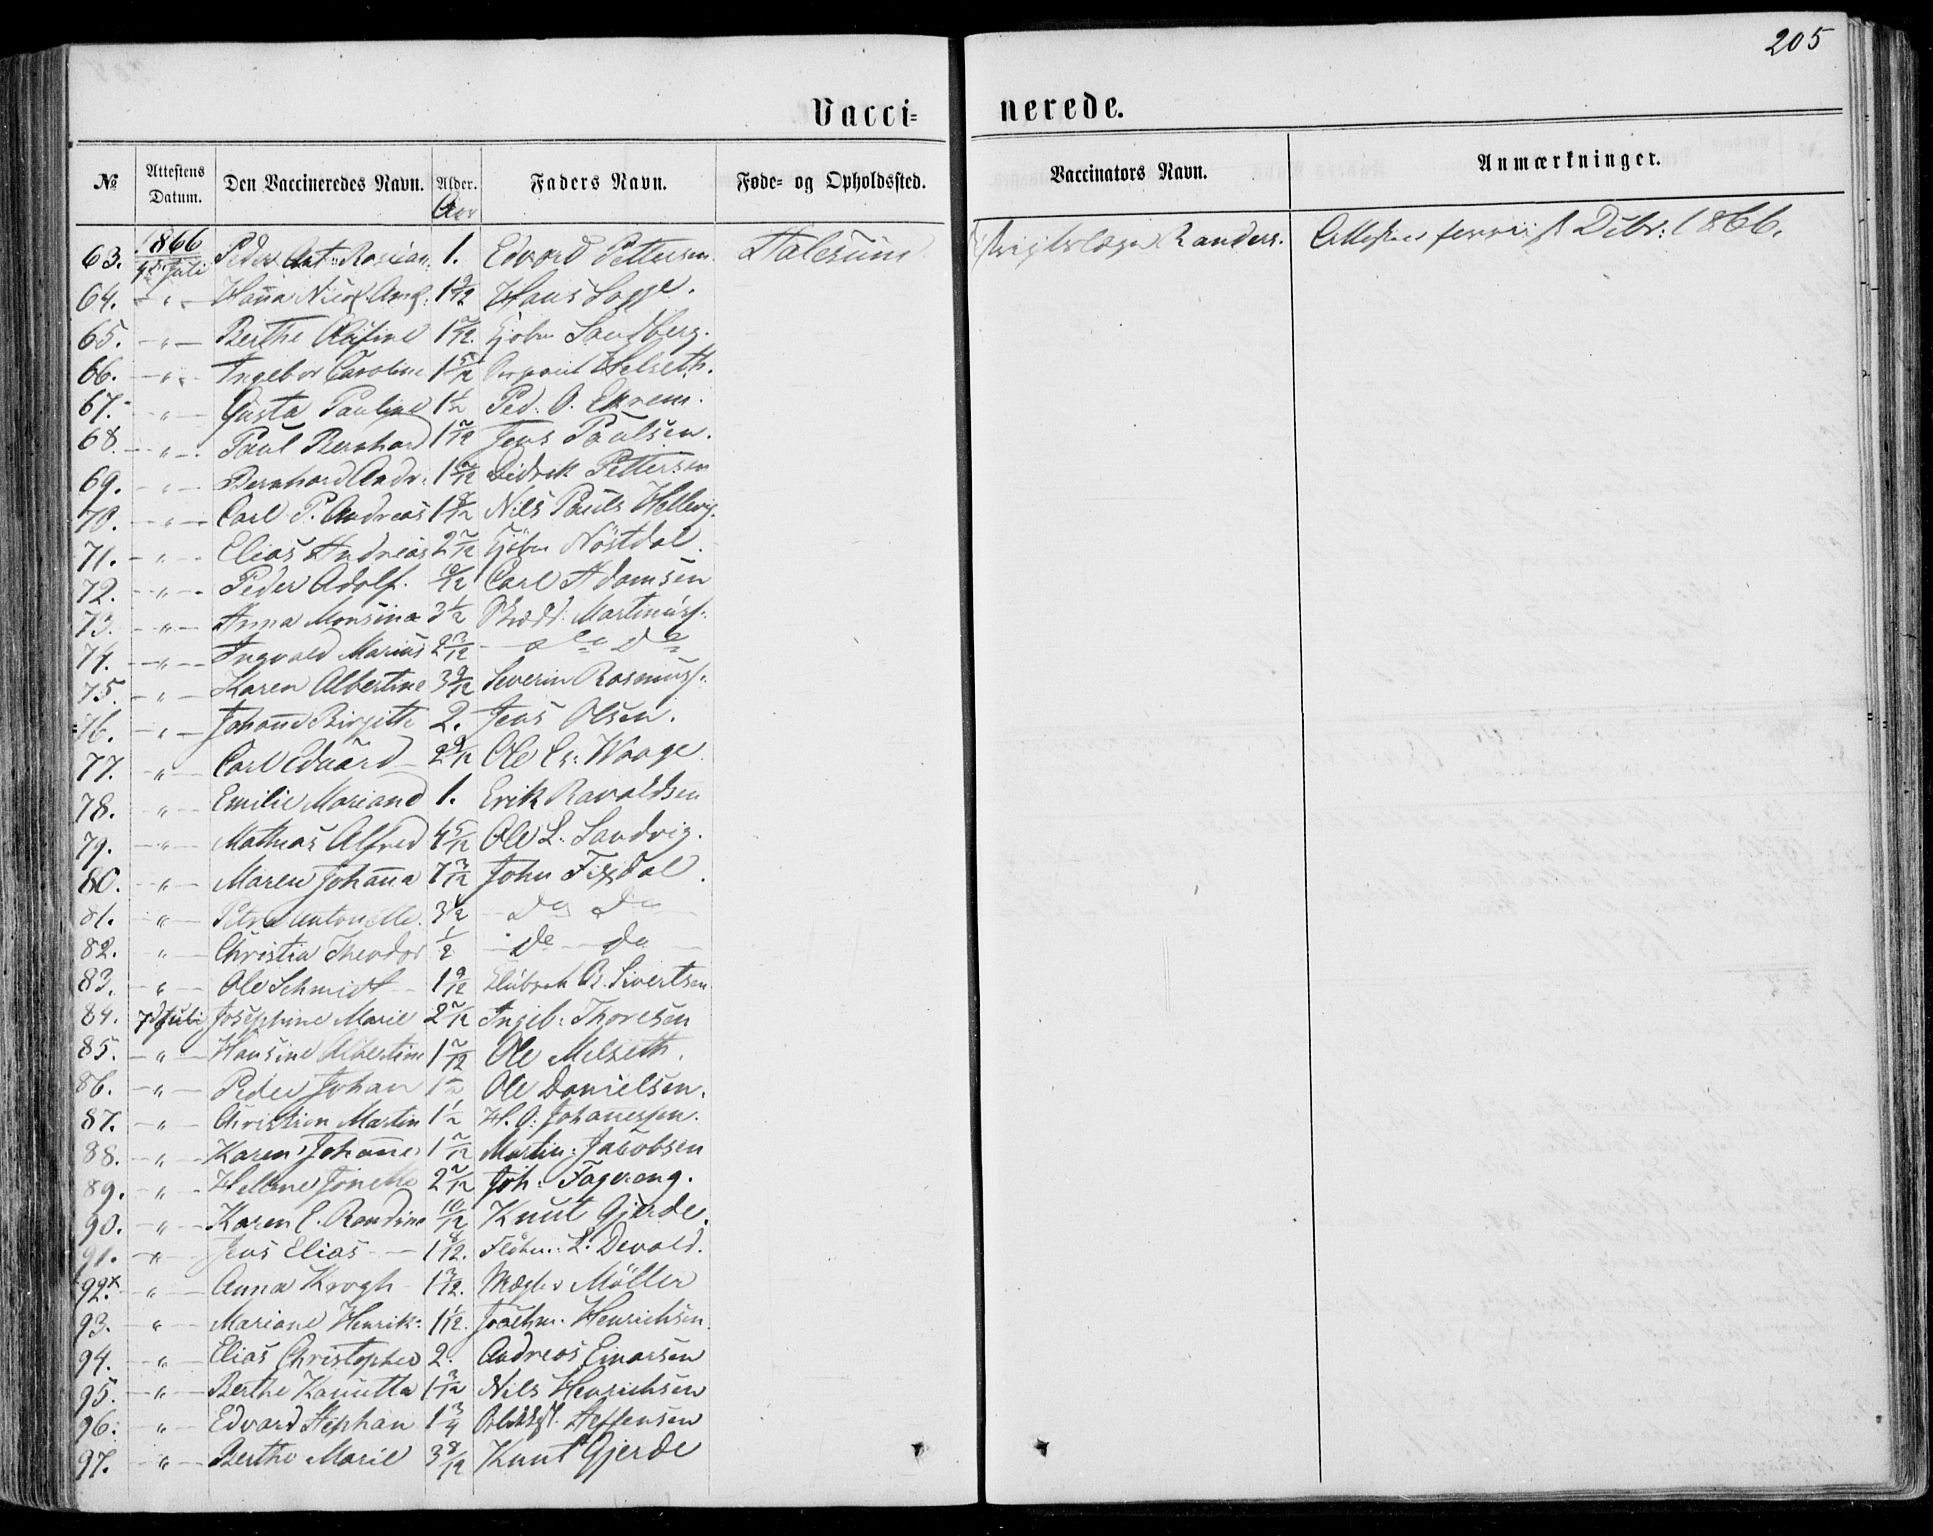 205
Vacci= nerede.
No Attestens Datum. Den Vaccineredes Navn. Alder. Faders Navn. Føde= og Opholdssted. Vaccinators Navn. Anmærkninger.
Aar
1866
63. Juli Peder Ant: 1. Edvard Pettersen Aalesund Randers. Debr: 1866.
64. - " - Hanna 1 9/12 Hans
65. - " - Berthe 1 Sandberg.
66. - " - Ingebor Caroline 1 5/12 Helseth.
67. " - Gusta Pauline 1 1/2 Ped. O. Ekrem.
68. - " - Paul Bernhard 1 Jens Paulsen.
69. " - Bernhard Andr. 1 Didrik Pettersen
70. - " - Carl P. Andreas 1 Nils Pauls Hellevig.
71. - " - Elias Andreas 2 Nöstdal.
72. - " - Peder Adolf. Carl Adamsen
73. - " - Anna Monsina 3 1/2 Martinuss.
74. - " - Ingvald Marius 2 3/12
75. - " - Karen Albertine 3 9/12 Severin Rasmuss.
76. - " - Johanne Birgitte 2. Jens Olsen.
77. - " - Carl Eduard - 2 9/12 Ole Er. Waage.
78. " - Emilie Mariane 1. Erik Ravaldsen
79. - " - Mathias Alfred 4 5/12 Ole L. Sandvig.
80. - " - Maren Johanna 7 3/12 John Fixdal.
81. " - Petra Antonette 3 1/2 - Do Do -
82. " - Christia Theodor 1/2 - Do - Do -
83. - " - Ole Schmidt - 1 9/12 B. Sivertsen
84. 7d Juli Josephine Marie 2 Ingeb: Thoresen
85. - " - Hansine Albertine 1 Ole Melseth.
86. - " - Peder Johan 1 Ole Danielsen.
87. - " - Christian Martin 1 1/2 H. O. Johanessen.
88. - " - Karen Johanne 1 Martin: Jacobsen
89. - " - Helene Jonette 2 Joh: Fagvang.
90. - " - Karen C. Randine 10/12 Knut Gjerde.
91. - " - Jens Elias - 1 8/12. L. Devold.
92.x - " - Anna Krogh - 1 3/12. Mægler Möller
93. " - Mariane Henrik: 1 1/12. Joachm. Henrichsen.
94. - " - Elias Christopher 2. Andreas Einarsen
95. - " - Berthe Kanutta 1 3/12 Nils Henrichsen
96. " - Edvard Stephan 1 3/4 Steffensen
97. - " - Berthe Marie 3 8/12 Knut Gjerde